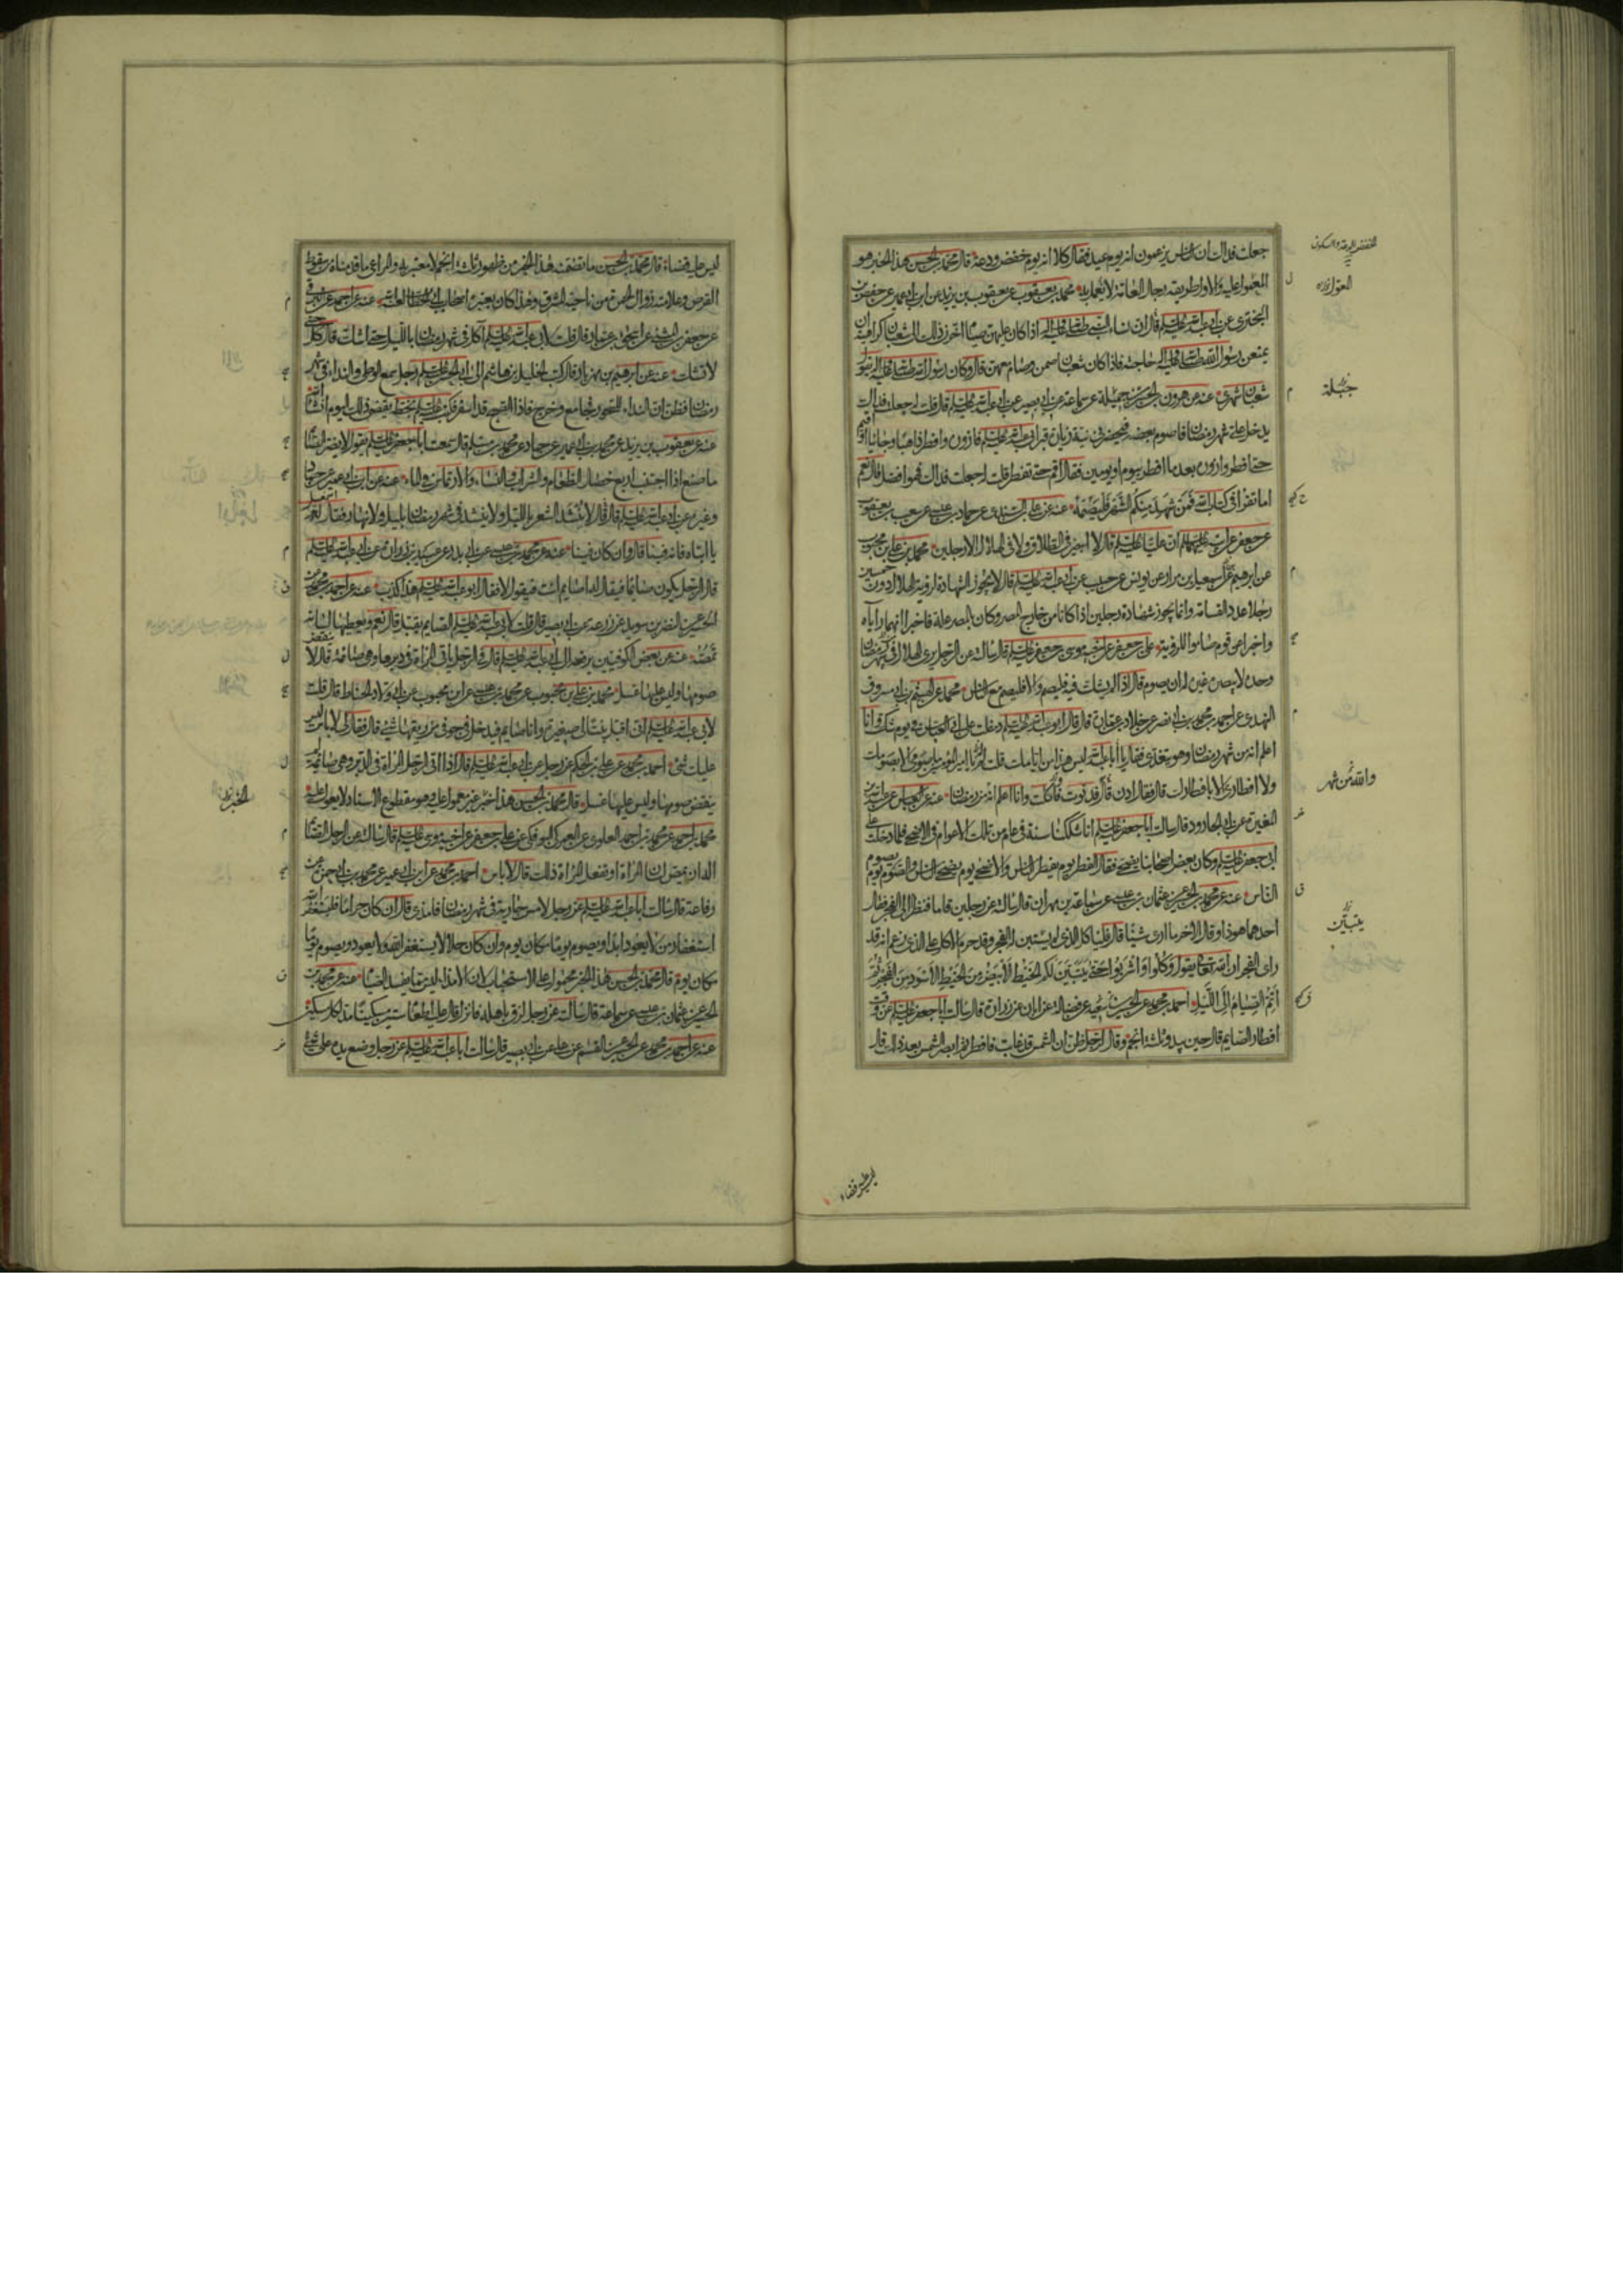 جعلت فداك ان الناس يزعمون انه يوم عيد فقال كلا انه يوم خفض ودعة قال محمد بن الحسن هذا الخبر هو
المعول عليه والاول طريقه رجال العامة لا يعمل به محمد بن يعقوب عن يعقوب بن يزيد عن ابن ابي عمير عن حفص بن
البختري عن ابي عبد الله عليه السلم قال ان نساء النبي صلى الله عليه واله اذا كان عليهن صيام اخرن ذلك الى شعبان كراهية ان
يمنعن رسول الله صلى الله عليه واله حاجته فاذا كان شعبان صمن وصام معهن قال وكان رسول الله صلى الله عليه واله يقول
شعبان شهري عنه عن هرون بن الحسن بن جبلة عن سماعة عن ابي بصير عن ابي عبد الله عليه السلم قال قلت له جعلت فداك
يدخل علي شهر رمضان فاصوم بعضه فيحضرني نية زيارة قبر ابي عبد الله عليه السلم فازوره وافطر ذاهبا وجائيا او اقيم
حتى افطر وازوره بعد ما افطر بيوم او يومين فقال اقم حتى تفطر قلت له جعلت فداك فهو افضل قال نعم
اما تقرأ في كتاب الله فمن شهد منكم الشهر فليصمه عنه عن علي بن السندي عن حماد بن عيسى عن شعيب بن يعقوب
عن جعفر عن ابيه عليهما السلم ان عليا عليه السلم قال لا اجيز في الطلاق ولا في الهلال الا رجلين محمد بن علي بن محبوب
عن ابرهيم عن اسمعيل بن مرار عن يونس عن حبيب عن ابي عبد الله عليه السلم قال لا تجوز الشهادة لرؤية الهلال دون خمسين
رجلا عدد القسامة وانما يجوز شهادة رجلين اذا كانا من خارج المصر وكان بالمصر علة فاخبرا انهما رأياه
واخبرا عن قوم صاموا للرؤية علي بن جعفر عن اخيه موسى بن جعفر عليه السلم قال سألته عن الرجل يرى الهلال في شهر رمضان
وحده لا يبصره غيره له ان يصوم قال اذا لم يشك فيه فليصم والا فليصم مع الناس محمد عن الهيثم بن ابي مسروق
النهدي عن احمد بن محمد بن ابي نصر عن خلاد بن عمارة قال قال ابو عبد الله عليه السلم دخلت على ابي العباس في يوم شك وانا
اعلم انه من شهر رمضان وهو يتغدى فقال يا ابا عبد الله ليس هذا من ايامك قلت لم يا امير المؤمنين ما صومي الا بصومك
ولا افطاري الا بافطارك قال فقال ادن قال فدنوت فاكلت وانا اعلم انه من رمضان عنه عن العباس عن عبد الله بن
المغيرة عن ابي الجارود قال سالت ابا جعفر عليه السلم انا شككنا سنة في عام من تلك الاعوام في الاضحى فلما دخلت على
ابي جعفر عليه السلم وكان بعض اصحابنا يضحي فقال الفطر يوم يفطر الناس والاضحى يوم يضحي الناس والصوم يوم يصوم
الناس عنه عن محمد بن الحسين عن عثمان بن عيسى عن سماعة بن مهران قال سألته عن رجلين قاما فنظرا الى الفجر فقال
احدهما هو ذا وقال الاخر ما ارى شيئا قال فليأكل الذي لم يستبن له الفجر وقد حرم الاكل على الذي زعم انه قد
راى الفجر ان الله تعالى يقول وكلوا واشربوا حتى يتبين لكم الخيط الأبيض من الخيط الأسود من الفجر ثم
اتموا الصيام الى الليل احمد بن محمد عن الحسين بن سعيد عن فضالة عن ابان عن زرارة قال سالت ابا جعفر عليه السلم عن وقت
افطار الصايم قال حين يبدو ثلثة انجم وقال لرجل ظن ان الشمس قد غابت فافطر ثم ابصر الشمس بعد ذلك قال
والله من شهر
جبلة
يتبين
ليس عليه قضاء
ليس عليه قضاء قال محمد بن الحسن ما تضمنه هذا الخبر من ظهور ثلثة انجم لا يعتبر به والمراعى ما قدمناه من سقوط
القرص وعلامته زوال الحمرة من ناحية المشرق وهذا كان يعتبره اصحاب ابي الخطاب لعنه الله عنه عن احمد عن البرقي
عن جعفر بن المثنى عن اسحق بن عمار قال قلت لابي عبد الله عليه السلم آكل في شهر رمضان بالليل حتى اشك قال كل حتى
لا تشك عنه عن ابرهيم بن مهزيار قال كتب الخليل بن هاشم الى ابي الحسن عليه السلم رجل سمع الوطي والنداء في شهر
رمضان فظن ان النداء للسحور فجامع وخرج فاذا الصبح قد اسفر فكتب عليه السلم بخطه يقضي ذلك اليوم انشاء الله
عنه عن يعقوب بن يزيد عن محمد بن ابي عمير عن حماد عن محمد بن مسلم قال سمعت ابا جعفر عليه السلم يقول لا يضر الصائم
ما صنع اذا اجتنب اربع خصال الطعام والشراب والنساء والارتماس في الماء عنه عن ابن ابي عمير عن حماد
وغيره عن ابي عبد الله عليه السلم قال قال لا ينشد الشعر بالليل ولا ينشد في شهر رمضان بليل ولا نهار فقال له اسمعيل
يا ابتاه فانه فينا قال وان كان فينا عنه عن محمد بن عيسى عن ابي بدر عن عبيد بن زرارة عن ابي عبد الله عليه السلم
الحسين عن النضر بن سويد عن زرعة عن ابي بصير قال قلت لابي عبد الله عليه السلم الصايم يقبل قال نعم ويعطيها لسانه
تمصه عنه عن بعض الكوفيين يرفعه الى ابي عبد الله عليه السلم قال في الرجل ياتي المراة في دبرها وهي صائمة قال لا ينقض
صومها وليس عليها غسل محمد بن علي بن محبوب عن محمد بن عيسى عن ابن محبوب عن ابي ولاد الحناط قال قلت
لابي عبد الله عليه السلم اني اقبل بنتا لي صغيرة وانا صايم فيدخل في جوفي من ريقها شئ قال فقال لي لا باس ليس
عليك شئ احمد بن محمد عن علي بن الحكم عن رجل عن ابي عبد الله عليه السلم قال اذا اتى الرجل المراة في الدبر وهي صائمة لم
ينقض صومها وليس عليها غسل قال محمد بن الحسن هذا خبر غير معمول عليه وهو مقطوع الاسناد لا يعول عليه
محمد بن احمد عن محمد بن احمد العلوي عن العمركي البوفكي عن علي بن جعفر عن اخيه موسى عليه السلم قال سالته عن الرجل الصائم
اله ان يمص لسان المراة او تفعل المراة ذلك قال لا باس احمد بن محمد عن ابن ابي عمير عن محمد بن ابي حمزة عن
رفاعة قال سالت ابا عبد الله عليه السلم عن رجل لامس جارية في شهر رمضان فامذى قال ان كان حراما فليستغفر الله
استغفار من لا يعود ابدا ويصوم يوما مكان يوم وان كان حلالا يستغفر الله ولا يعود ويصوم يوما
مكان يوم قال محمد بن الحسن هذا الخبر محمول على الاستحباب لان الامذاء ليس مما يفسد الصيام عنه عن محمد بن
الحسين عن عثمان بن عيسى عن سماعة قال سالته عن رجل لزق باهله فانزل قال عليه اطعام ستين مسكينا مد لكل مسكين
عنه عن احمد بن محمد عن الحسين عن القسم عن علي عن ابي بصير قال سالت ابا عبد الله عليه السلم عن رجل وضع يده على شئ